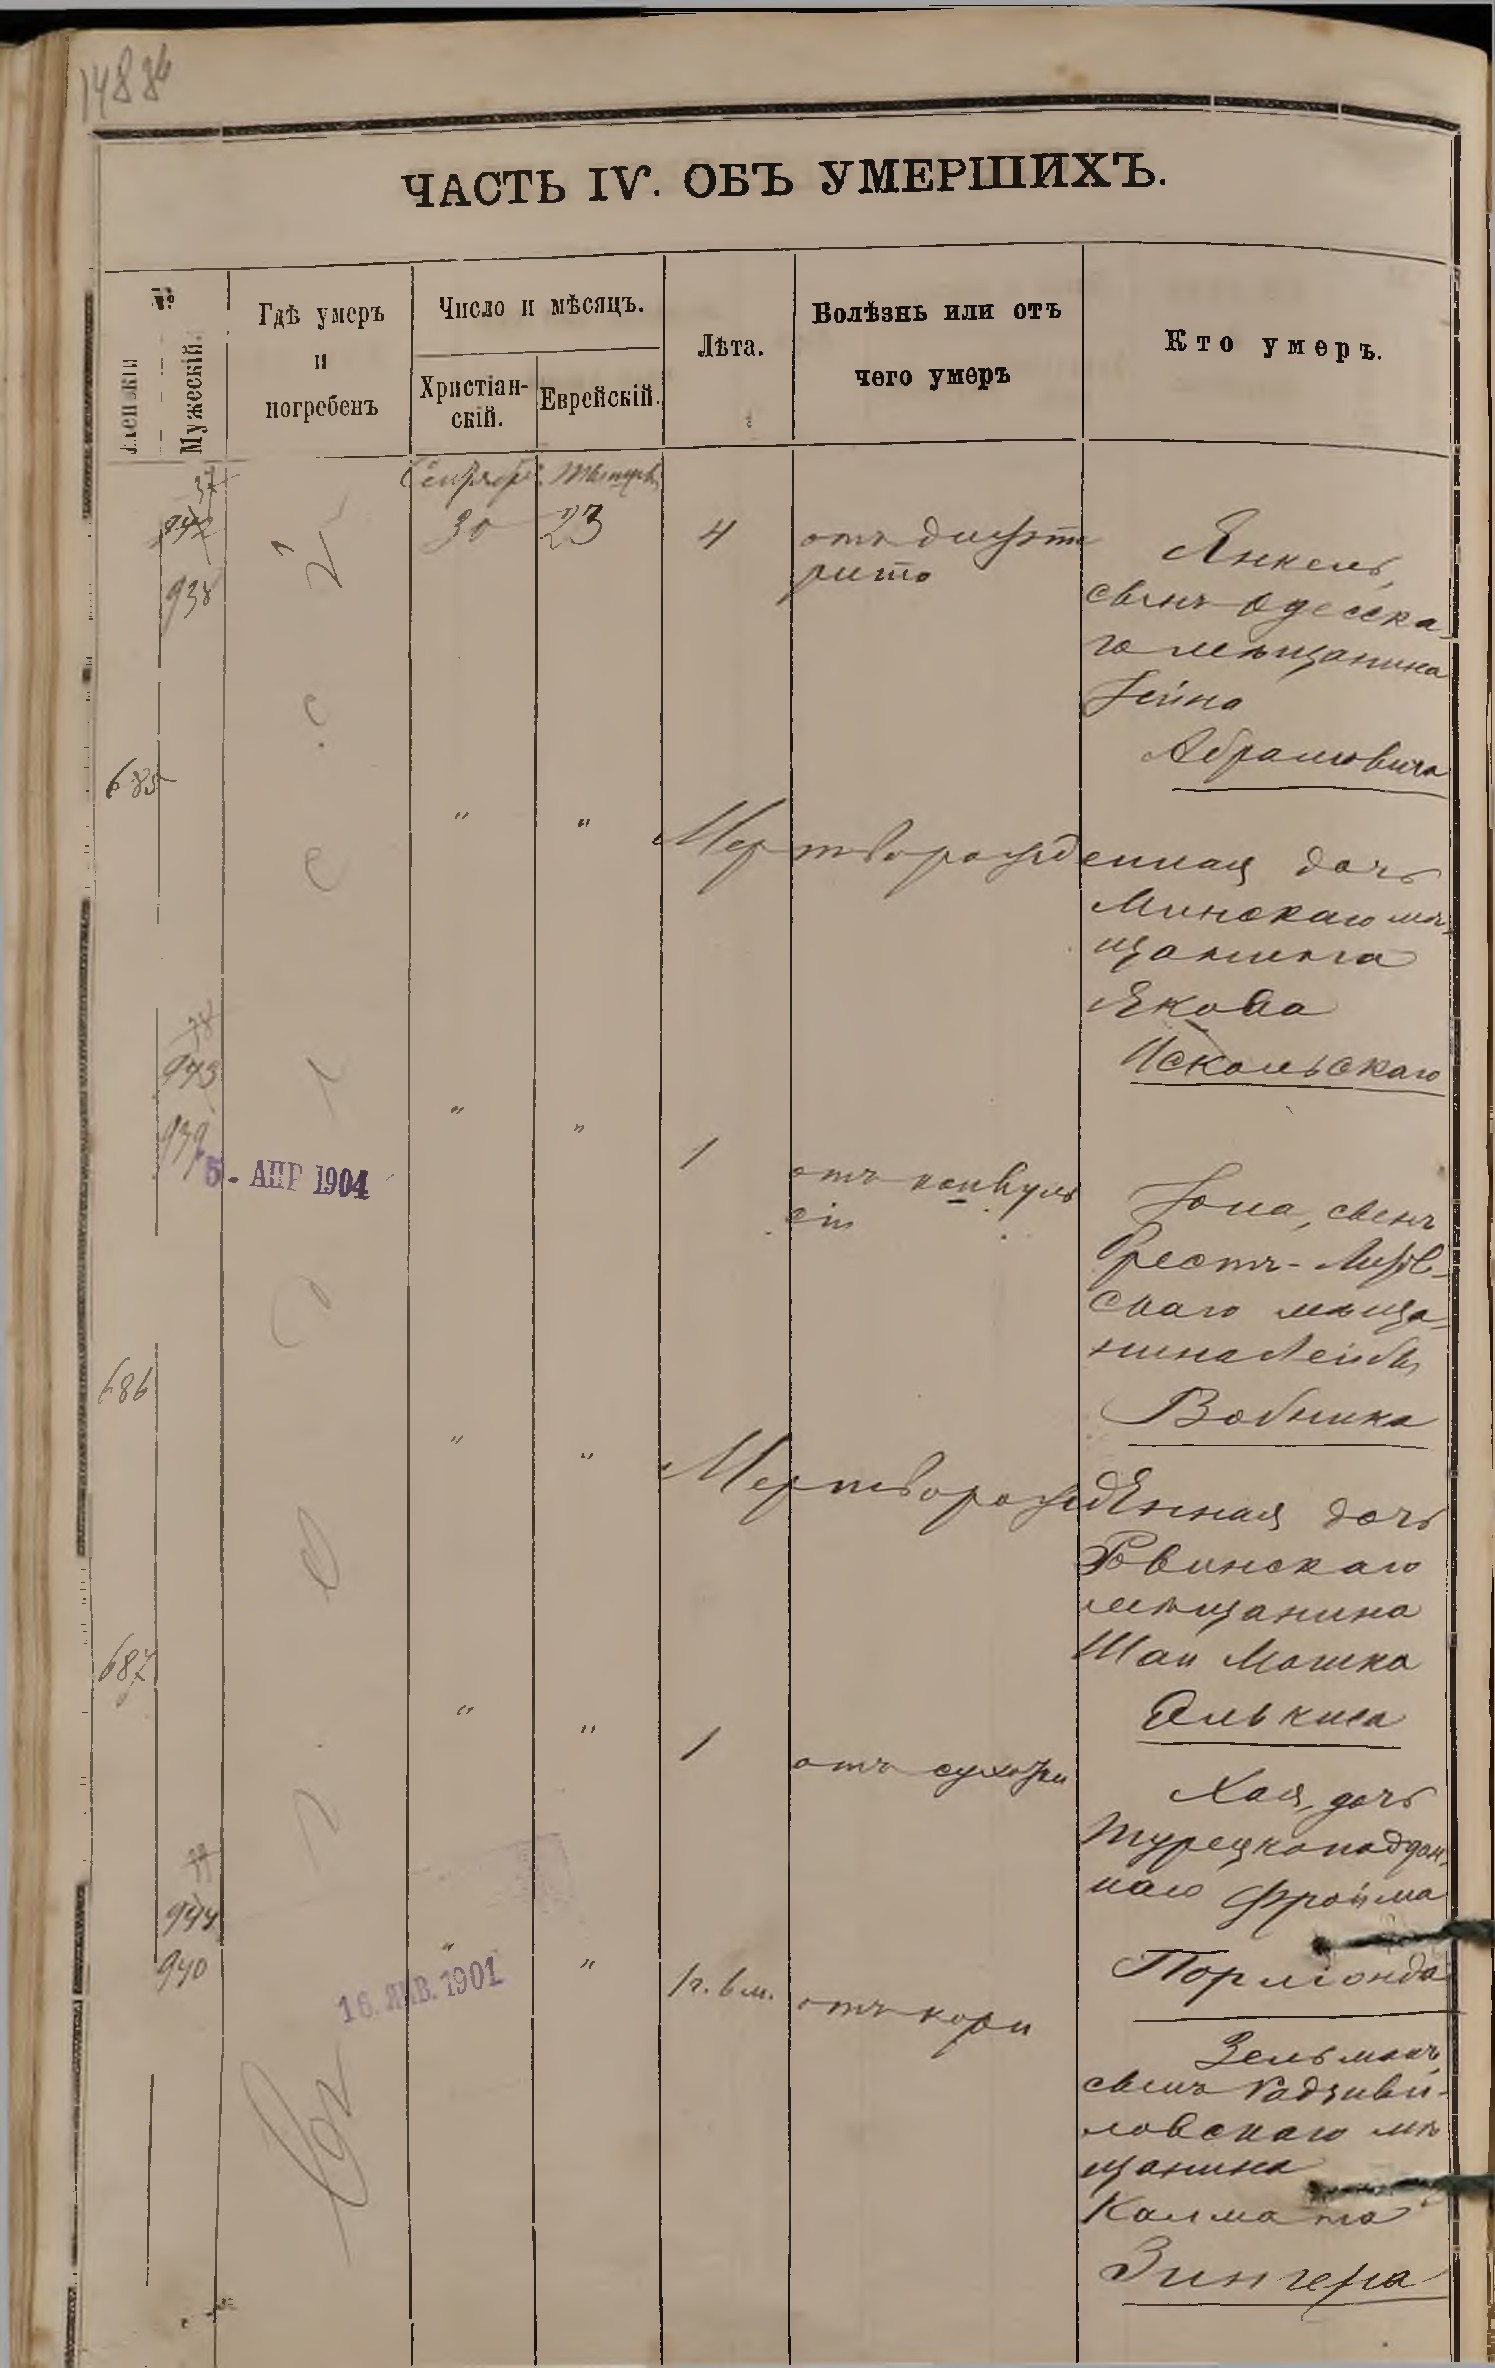 ЧАСТЬ IV. ОБЪ УМЕРШИХЪ.
№
Женскій
Мужескій.
Гдѣ умеръ
и
погребенъ
Число и мѣсяцъ.
Христіан-
скій.
Еврейскій.
Лѣта.
Болѣзнь или отъ
чего умеръ
Кто умеръ.
Сентябрь
37
942
938
30
23
4
отъ дифте
рита
Янкель,
сынъ Одесска-
го мѣщанина
Хейна
Абрамовича
685
"
"
Мертворожденная дочь
Минскаго мѣ-
щанина
Якова
Искольскаго
38
943
939
"
"
1
отъ конвуль
сіи
5 - АПР 1904
Іона, сынъ
Брестъ-Литов-
скаго мѣща-
нина Лейбы
Вобника
686
"
"
Мертворожденная дочь
Ровинскаго
мѣщанина
Шаи Мошка
Элькиса
687
"
"
1
отъ сухотки
Хая, дочь
Турецкоподдан-
наго Фроима
39
944
940
16. ЯНВ. 1901
"
"
1 г. 6 м.
отъ кори
Зельманъ,
сынъ Радзиви-
ловскаго мѣ
щанина
Калмана
Зингера